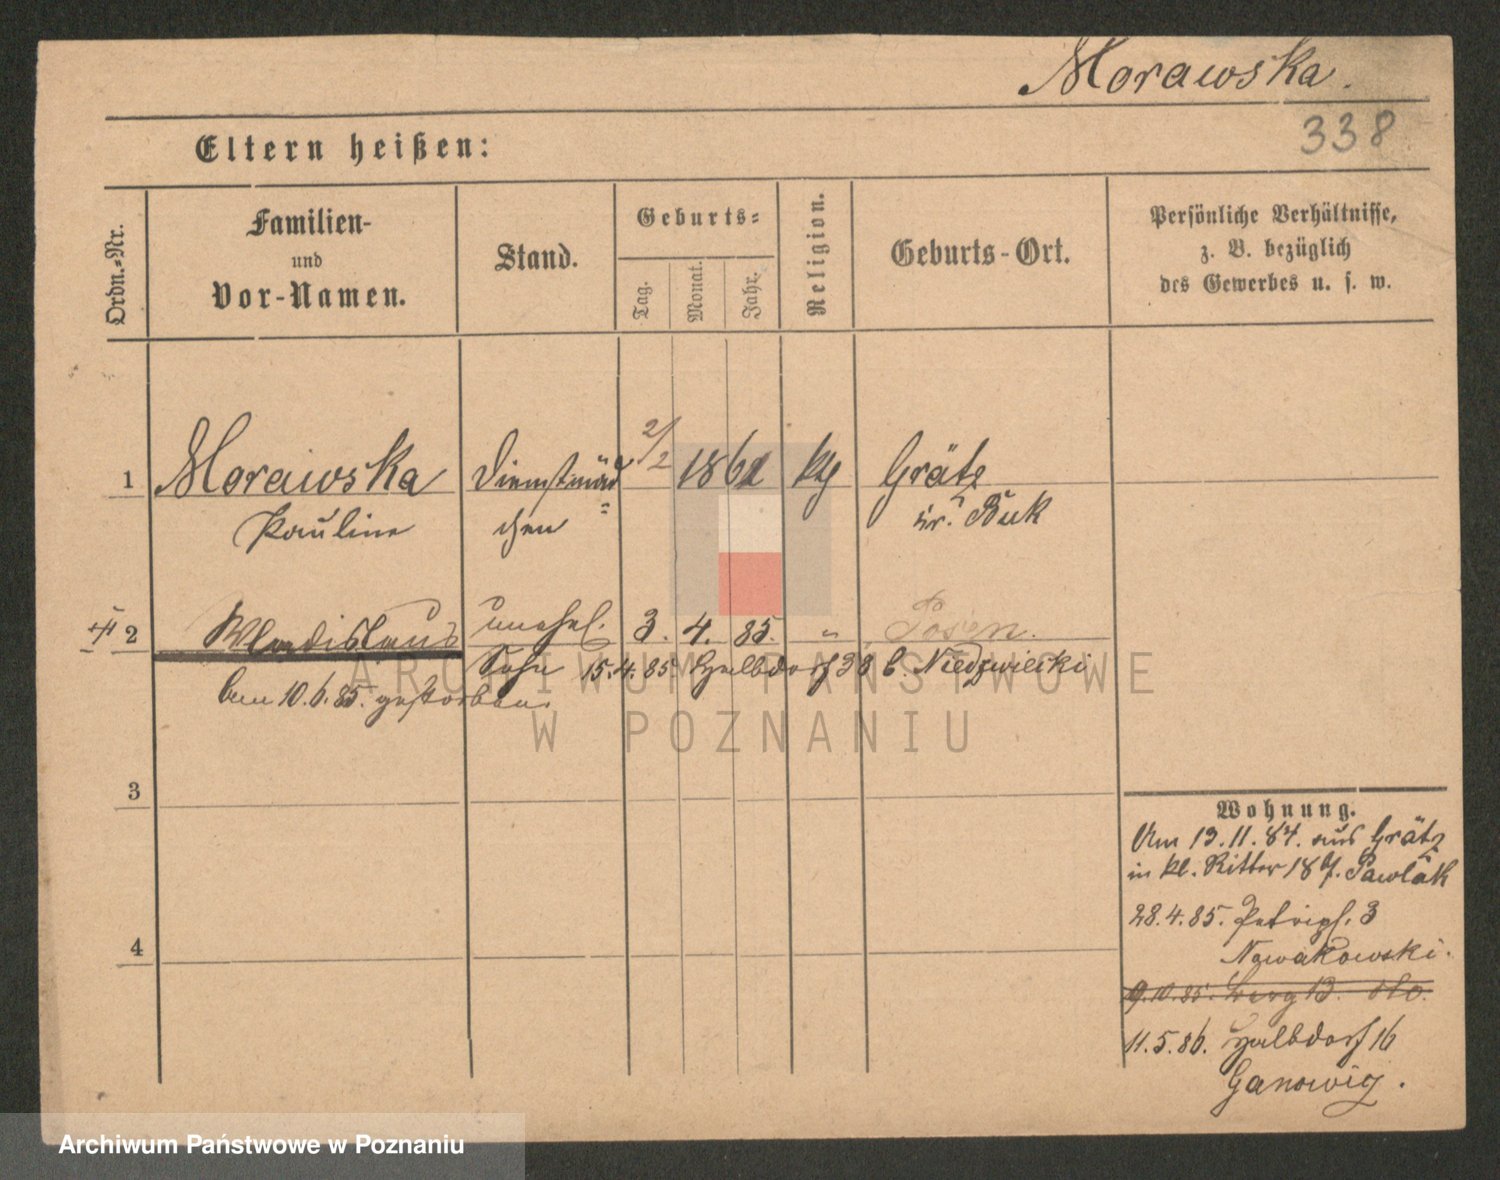 Morawska.
338
Eltern heißen:
Ordn.-Nr.
Familien-
und
Vor-Namen.
Stand.
Geburts-
Tag.
Monat.
Jahr.
Religion.
Geburts-Ort.
Persönliche Verhältnisse,
z. B. bezüglich
des Gewerbes u. s. w.
1 Morawska Dienstmäd= 2/2 1861 kth Grätz
Pauline chen Kr. Buk
2 Wladislaus unehel. 3. 4. 85. " Posen.
Sohn 15.4.85 Halbdorf 38 b. Niedzwiecki
am 10.6.85. gestorben.
3
4
Wohnung.
Am 13.11.84. aus Grätz
in kl. Ritter 18 Pawlak
28.4.85. Petripl. 3
Nowakowski.
9.10.85. Berg 13.
11.5.86. Halbdorf 16
Ganowig.
ARCHIWUM PAŃSTWOWE
W POZNANIU
Archiwum Państwowe w Poznaniu